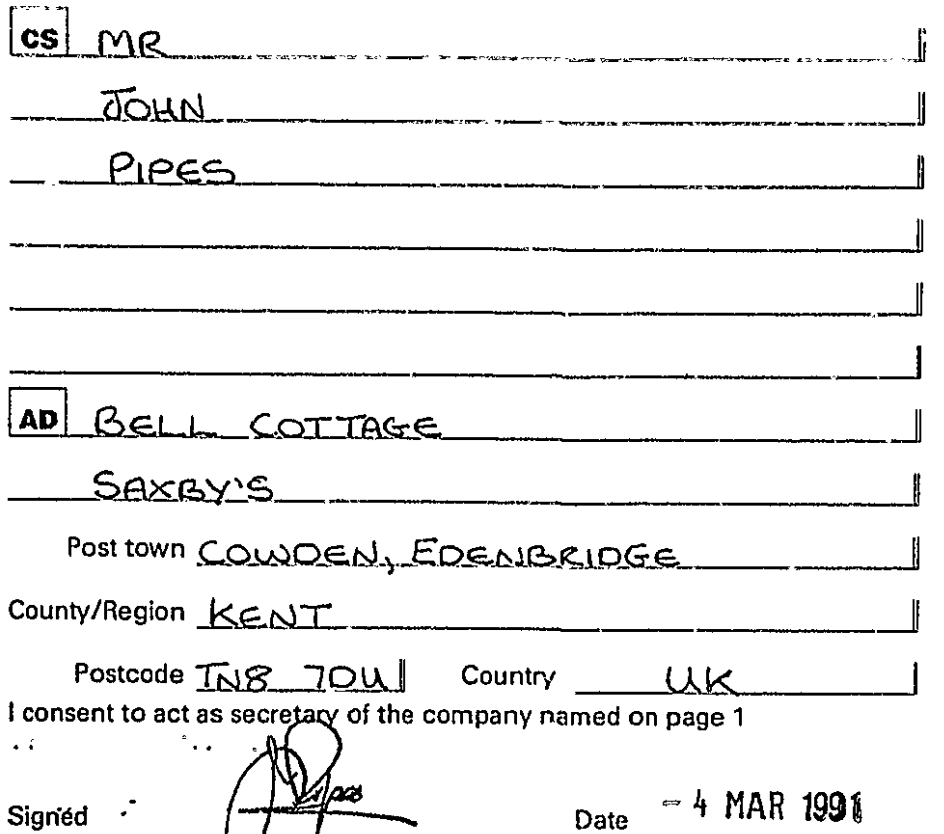 CS MR
JOHN
PIPES
AD BELL COTTAGE
SAXBY'S
Post town COWDEN, EDENBRIDGE
County/Region KENT
Postcode TN8 7DU Country UK
I consent to act as secretary of the company named on page 1
Signed Date - 4 MAR 1991